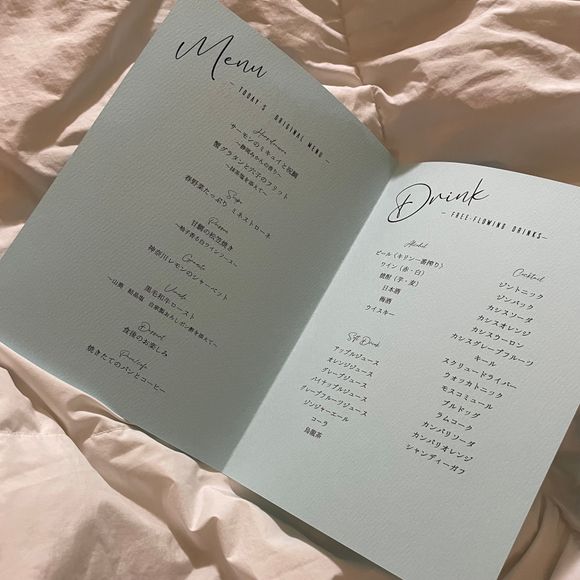 Menu
- TODAY'S ORIGINAL MENU -
サーモンのミキュイと祝鯛
～静岡みかんの香り～
蟹グラタンと穴子のフリット
～抹茶塩を添えて～
Soup
春野菜たっぷり ミネストローネ
Poisson
甘鯛の松笠焼き
～柚子香る白ワインソース～
Granite
神奈川レモンのシャーベット
Viande
黒毛和牛ロースト
～山葵 結晶塩 自家製おろしポン酢を添えて～
Dessert
食後のお楽しみ
Pain/cafe
焼きたてのパンとコーヒー
Drink
- FREE-FLOWING DRINKS-
Alcohol
ビール〈キリン一番搾り〉
ワイン（赤・白）
焼酎（芋・麦）
日本酒
梅酒
ウイスキー
Soft Drink
アップルジュース
オレンジジュース
グレープジュース
パイナップルジュース
グレープフルーツジュース
ジンジャーエール
コーラ
烏龍茶
Cocktail
ジントニック
ジンバック
カシスソーダ
カシスオレンジ
カシスウーロン
カシスグレープフルーツ
キール
スクリュードライバー
ウォッカトニック
モスコミュール
ブルドッグ
ラムコーク
カンパリソーダ
カンパリオレンジ
シャンディーガフ